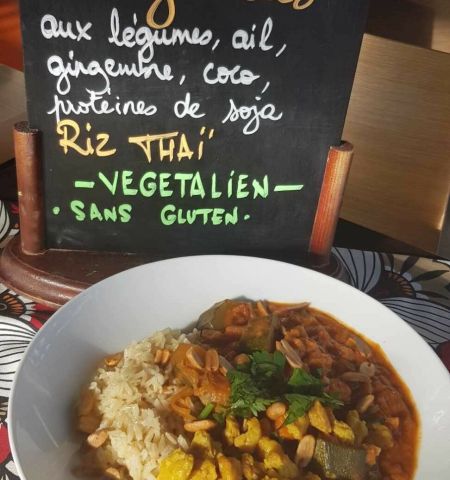 aux légumes, ail,
gingembre, coco,
proteines de soja
Riz THAÏ
- VEGETALIEN -
. SANS GLUTEN .